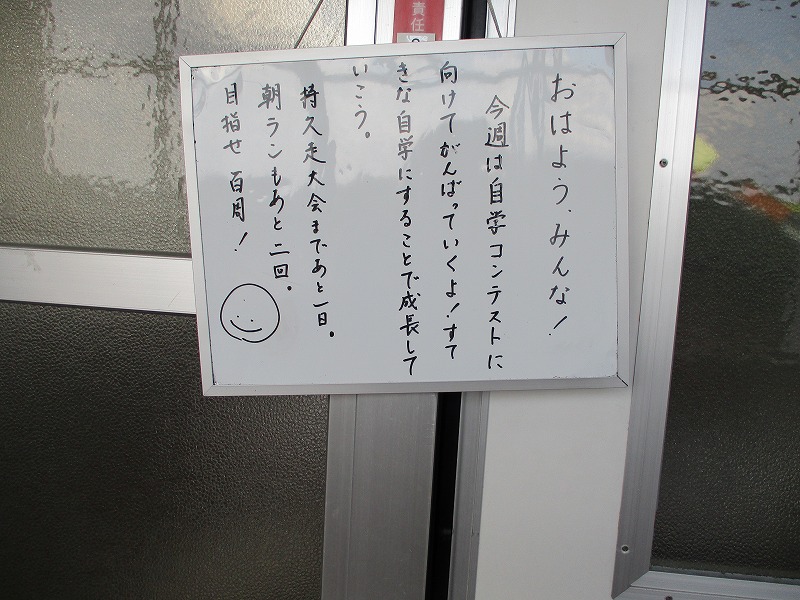 おはよう、みんな!
今週は自学コンテストに
向けてがんばっていくよ!すて
きな自学にすることで成長して
いこう。
持久走大会まであと一日。
朝ランもあと二回。
目指せ百周!
責任